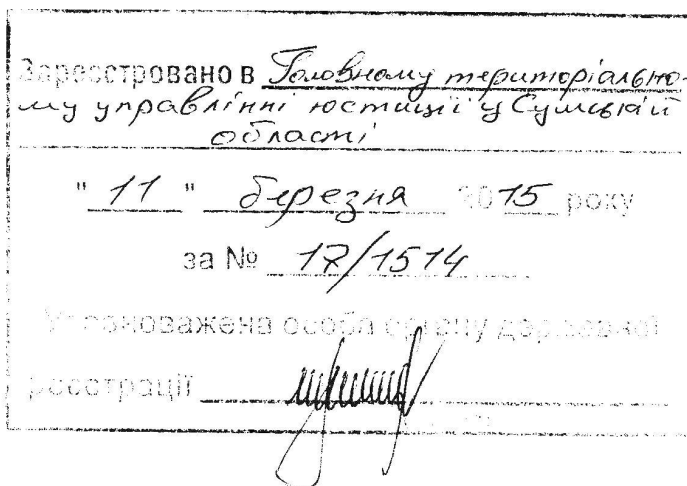 Зареєстровано в Головному територіально-
му управлінні юстиції у Сумській
області
"11" березня 2015 року
за № 17/1514
Уповноважена особа органу державної
реєстрації